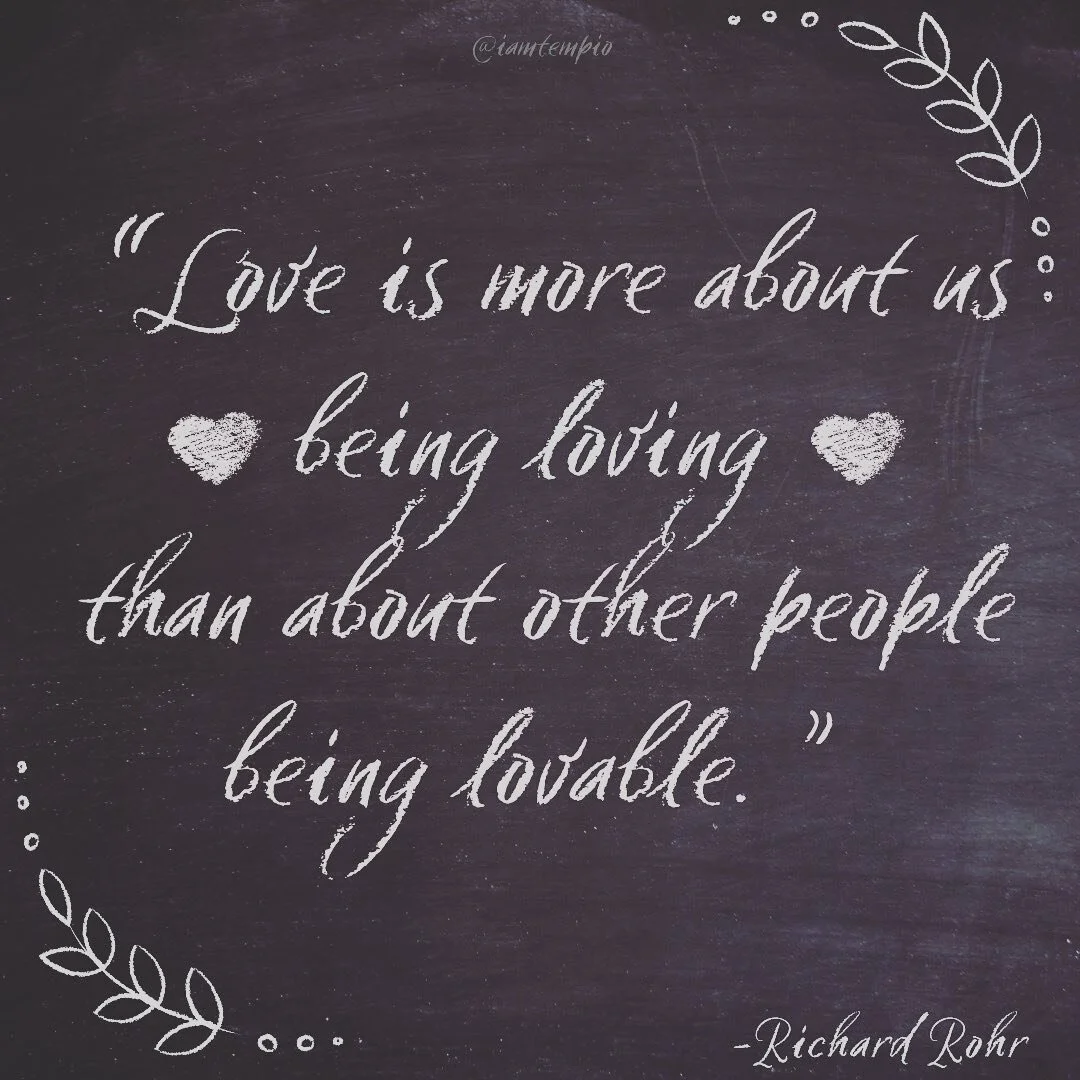 @iamtempio
“Love is more about us
being loving
than about other people
being lovable. ”
-Richard Rohr